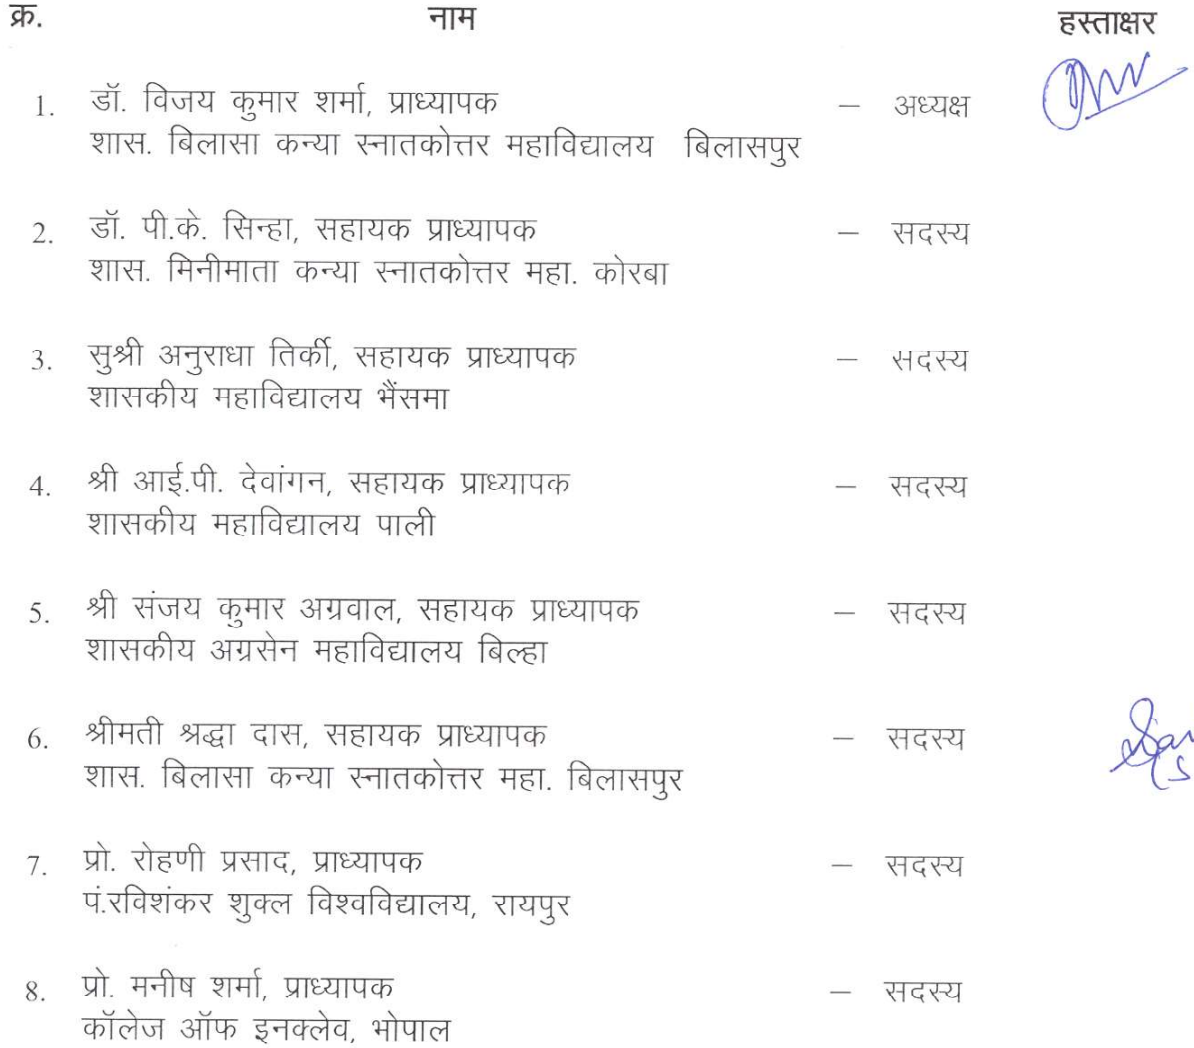 क्र. नाम हस्ताक्षर
1. डॉ. विजय कुमार शर्मा, प्राध्यापक – अध्यक्ष
शास. बिलासा कन्या स्नातकोत्तर महाविद्यालय बिलासपुर
2. डॉ. पी.के. सिन्हा, सहायक प्राध्यापक – सदस्य
शास. मिनीमाता कन्या स्नातकोत्तर महा. कोरबा
3. सुश्री अनुराधा तिर्की, सहायक प्राध्यापक – सदस्य
शासकीय महाविद्यालय भैंसमा
4. श्री आई.पी. देवांगन, सहायक प्राध्यापक – सदस्य
शासकीय महाविद्यालय पाली
5. श्री संजय कुमार अग्रवाल, सहायक प्राध्यापक – सदस्य
शासकीय अग्रसेन महाविद्यालय बिल्हा
6. श्रीमती श्रद्धा दास, सहायक प्राध्यापक – सदस्य
शास. बिलासा कन्या स्नातकोत्तर महा. बिलासपुर
7. प्रो. रोहणी प्रसाद, प्राध्यापक – सदस्य
पं.रविशंकर शुक्ल विश्वविद्यालय, रायपुर
8. प्रो. मनीष शर्मा, प्राध्यापक – सदस्य
कॉलेज ऑफ इनक्लेव, भोपाल